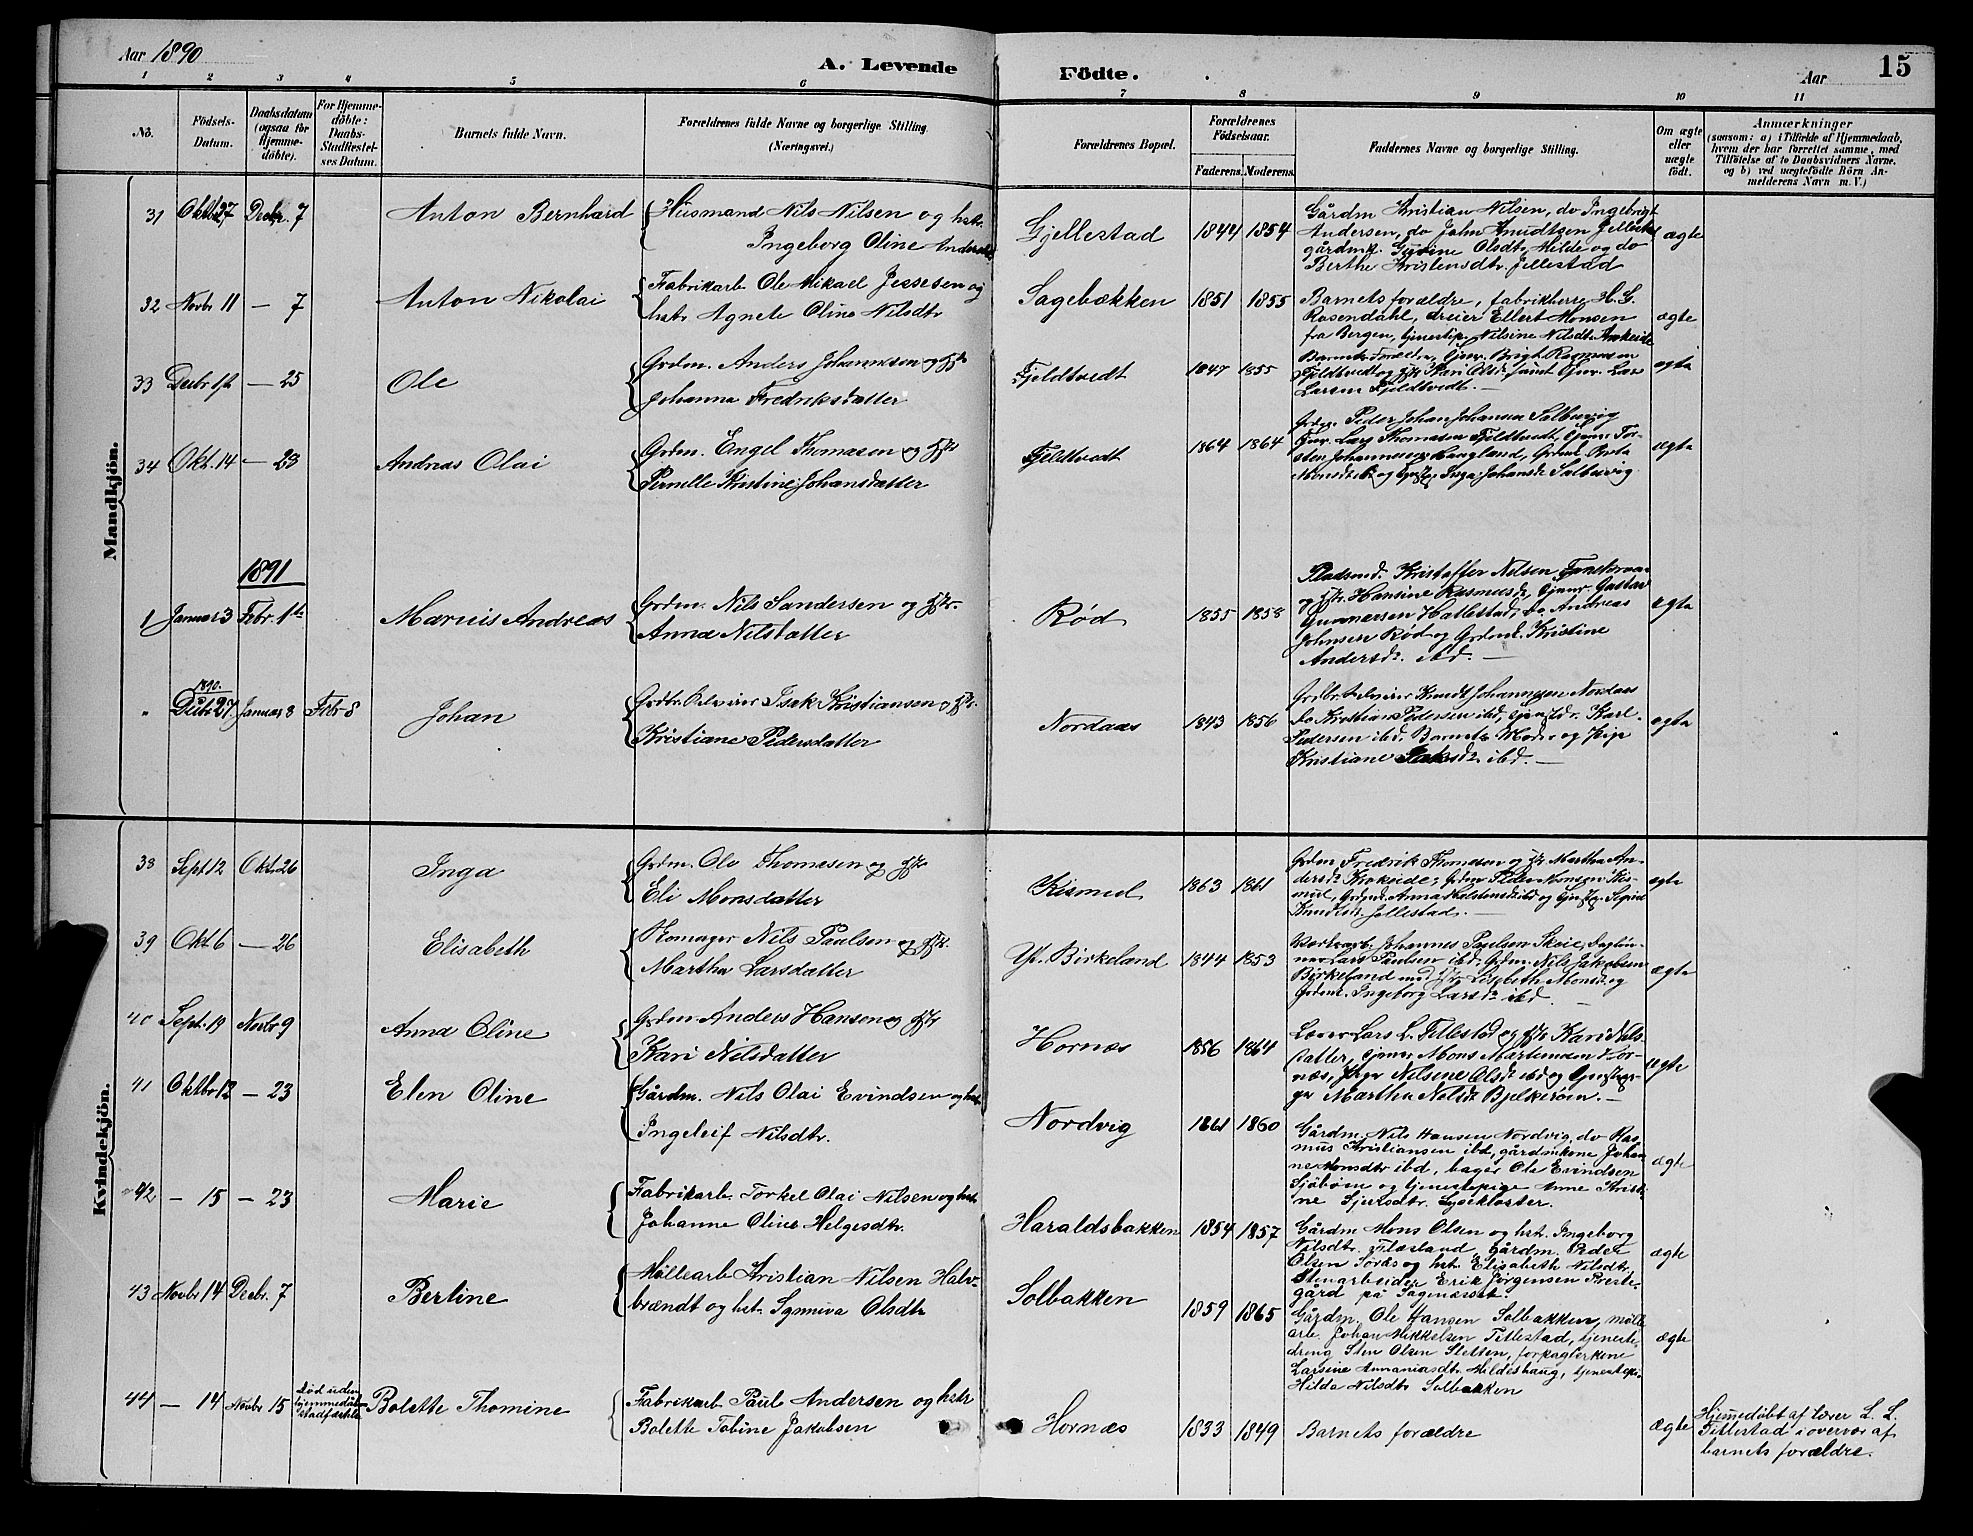 Aar 1890
A. Levende
Födte.
Aar
15
1 2 3 4 5 6 7 8 9 10 11
No.
Födsels-
Datum.
Daabsdatum
(ogsaa for
Hjemme-
döbte).
For Hjemme-
döbte:
Daabs-
Stadfæstel-
ses Datum.
Barnets fulde Navn.
Forældrenes fulde Navne og borgerlige Stilling
(Næringsvei.)
Forældrenes Bopæl.
Forældrenes
Födselsaar.
Faderens. Moderens.
Faddernes Navne og borgerlige Stilling.
Om ægte
eller
uægte
födt.
Anmærkninger
(saasom: a) i Tilfælde af Hjemmedaab,
hvem der har forrettet samme, med
Tilföielse af to Daabsvidners Navne,
og b) ved uægtefödte Börn An-
melderens Navn m. V.)
Mandkjön.
31 Oktbr 27 Decbr. 7 Anton Bernhard
Husmand Nils Nilsen og hst.
Ingeborg Oline
Gjellestad 1844 1854
Gårdm Kristian Nilsen, do Ingebrigt
Andersen, do John Knudtsen
gårdmk. Olsdtr. Milde og do
Berthe Kristensdtr. Jellestad
ægte
32 Novbr 11 — 7 Anton Nikolai
Fabrikarb Ole Mikael Jessesen og
hstr Agnete Oline Nilsdtr
Sagebækken 1851 1855
Barnets forældre, fabrikherre H. G.
Rosendahl, dreier Ellert Monsen
fra Bergen, tjenestep. Nilsine Nilsdtr
ægte
33 Decbr 1st — 25 Ole
Grdm. Anders Johannesen og Hst
Johanna Fredriksdatter
Fjeldtvedt 1847 1855
Barnets Forældre, Gjmr. Brigt Rasmusen
Fjeldtvedt og Kari Olsdr, samt Lars
Larsen Fjeldtvedt. —
ægte
34 Okt. 14 — 28 Andreas Olai
Grdm. Engel Thomasen og Hst
Pernille Kristine Johansdatter
Fjeldtvedt 1864 1864
Grdm. Peder Johan Johansen Salbuvig
Lars Thomasen Fjeldtvedt, Tor-
sten Johannesen Haugland,
og Inga Johansd. Salbuvig
ægte
1891
1 Januar 3 Febr. 1ste Marius Andreas
Grdm. Nils Sandersen og Hstr.
Anna Nilsdatter
Rød 1855 1858
Pladsmd. Kristoffer Nilsen
og Hansine Rasmusd, Gustav
Gunnersen Hatlestad, do Andreas
Johnsen Rød og Kristine
Andersd. ibd. —
ægte
" 1890. Decbr. 27. Januar 8 Febr 8 Johan
Isak Kristiansen og Hstr.
Kristiane Pedersdatter
Nordaas 1843 1856
Knudt Johannesen Nordaas
do Kristian Pedersen ibd, Karl
Pedersen ibd, Barnets Moder og Pige
Kristiane Isaksd. ibd. —
ægte
Kvindekjön.
38 Sept 12 Okt. 26 Inga
Grdm. Ole Thomesen og Hst
Eli Monsdatter
Kismul 1863 1861
Grdm Fredrik Thomesen og Martha An-
dersd Krokeide; Grdm Peder Monsen Kis-
mul, ibd og Sigrid
Knudtsd. Jellestad. —
ægte
39 Okt 6 — 26 Elisabeth
Skomager Nils Paulsen og Hstr.
Martha Larsdatter
Yt. Birkeland 1844 1853
Johannes Paulsen Skeie, Daglön-
ner Lars Paulsen ibd, Grdm. Nils Jakobsen
Birkeland med Lisebeth Monsd. og
Ingeborg Larsd. ibd.
ægte
40 Sept. 19 Novbr 9 Anna Oline
Grdm. Anders Hansen og Hstr
Kari Nilsdatter
Hornæs 1856 1864
Lærer Lars L. Tittestad og Kari Nils-
datter, Mons Martinusen Hor-
næs, Pige Nilsine Olsd ibd og
ge Martha Nilsd. Bjelkerøen. —
ægte
41 Oktbr 12 — 23 Elen Oline
Gårdm. Nils Olai Evindsen og hst.
Ingeleif Nilsdtr.
Nordvig 1861 1860
Gårdm. Nils Hansen Nordvig, do Ras-
mus Kristiansen ibd, gårdmkone Johan-
ne Monsdtr ibd, bager Ole Evindsen
Sjöbøen og tjenestepige Anne Kristi-
ne Sjursdtr. Lysekloster.
ægte
42 — 15 — 23 Marie
Fabrikarb. Torkel Olai Nilsen og hst.
Johanne Oline Helgesdtr.
Haraldsbakken 1854 1857
Gårdm Mons Olsen og hst. Ingeborg
Nilsdtr. Flæsland, gårdm. Peder
Olsen Sörås og hst. Elisabeth Nilsdtr.
Stenarbeider Erik Jörgensen Preste-
gård på Sagenæsset.
ægte
43 Novbr 14 Decbr. 7 Berline
Möllearb Kristian Nilsen Halv-
brændt og hst. Synniva Olsdtr
Solbakken 1859 1865
Gårdm. Ole Hansen Solbakken, mölle-
arb. Johan Mikkelsen Tittestad, tjeneste-
dreng Sten Olsen Sletten, forpagterkone
Larsine Annaniasdtr. Hildeshaug, tjenestepi.
Hilda Nilsdtr Solbakken
ægte
44 — 14 Novbr 15 Død uden
hjemmedåbs
stadfæstelse
Bolette Thomine
Fabrikarb Paul Andersen og hstr
Bolette Tobine Jakobsen
Hornæs 1833 1849 Barnets forældre
ægte
Hjemmedöbt af lærer L. L.
Tittestad i overvær af
barnets forældre.